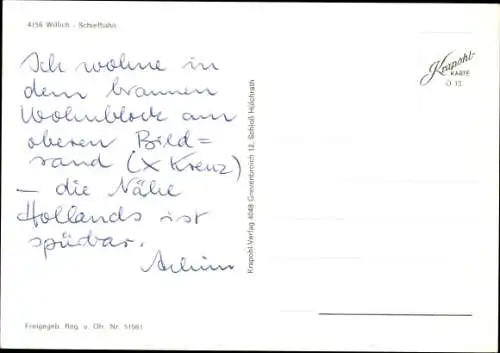 4156 Willich - Schiefbahn
Ich wohne in
dem braunen
Wohnblock am
oberen Bild=
rand (X Kreuz)
— die Nähe
Hollands ist
spürbar.
Achim
Freigegeb. Reg. v. Dfr. Nr. 51561
Krapohl-Verlag 4048 Grevenbroich 12, Schloß Hülchrath
Krapohl
KARTE
O 13